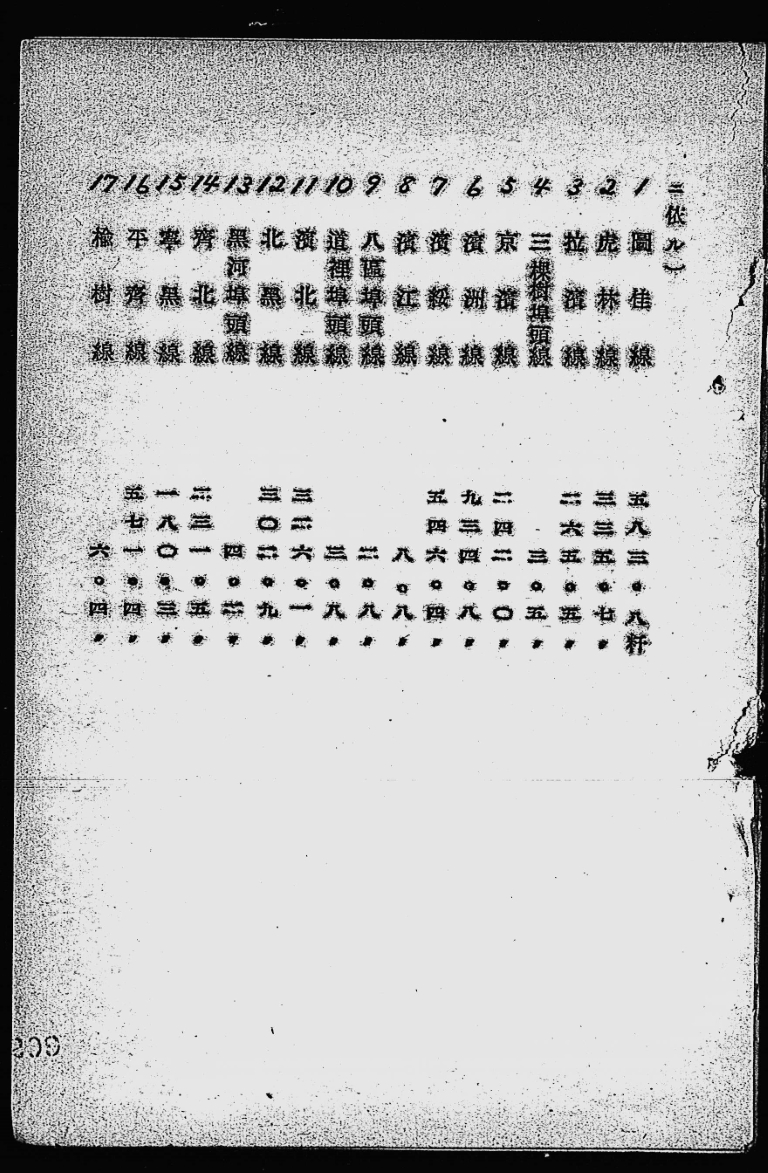 ニ依ル)
1 圖佳線 五八三。八粁
2 虎林線 三三五。七〃
3 拉濱線 二六五。五〃
4 三棵樹埠頭線 三。五〃
5 京濱線 二四二。〇〃
6 濱洲線 九三四。八〃
7 濱綏線 五四六。四〃
8 濱江線 八。八〃
9 八區埠頭線 二。八〃
10 道裡埠頭線 三。八〃
11 濱北線 三二六。一〃
12 北黑線 三〇二。九〃
13 黑河埠頭線 四。二〃
14 齊北線 二三一。五〃
15 寧黑線 一八〇。三〃
16 平齊線 五七一。四〃
17 楡樹線 六。四〃